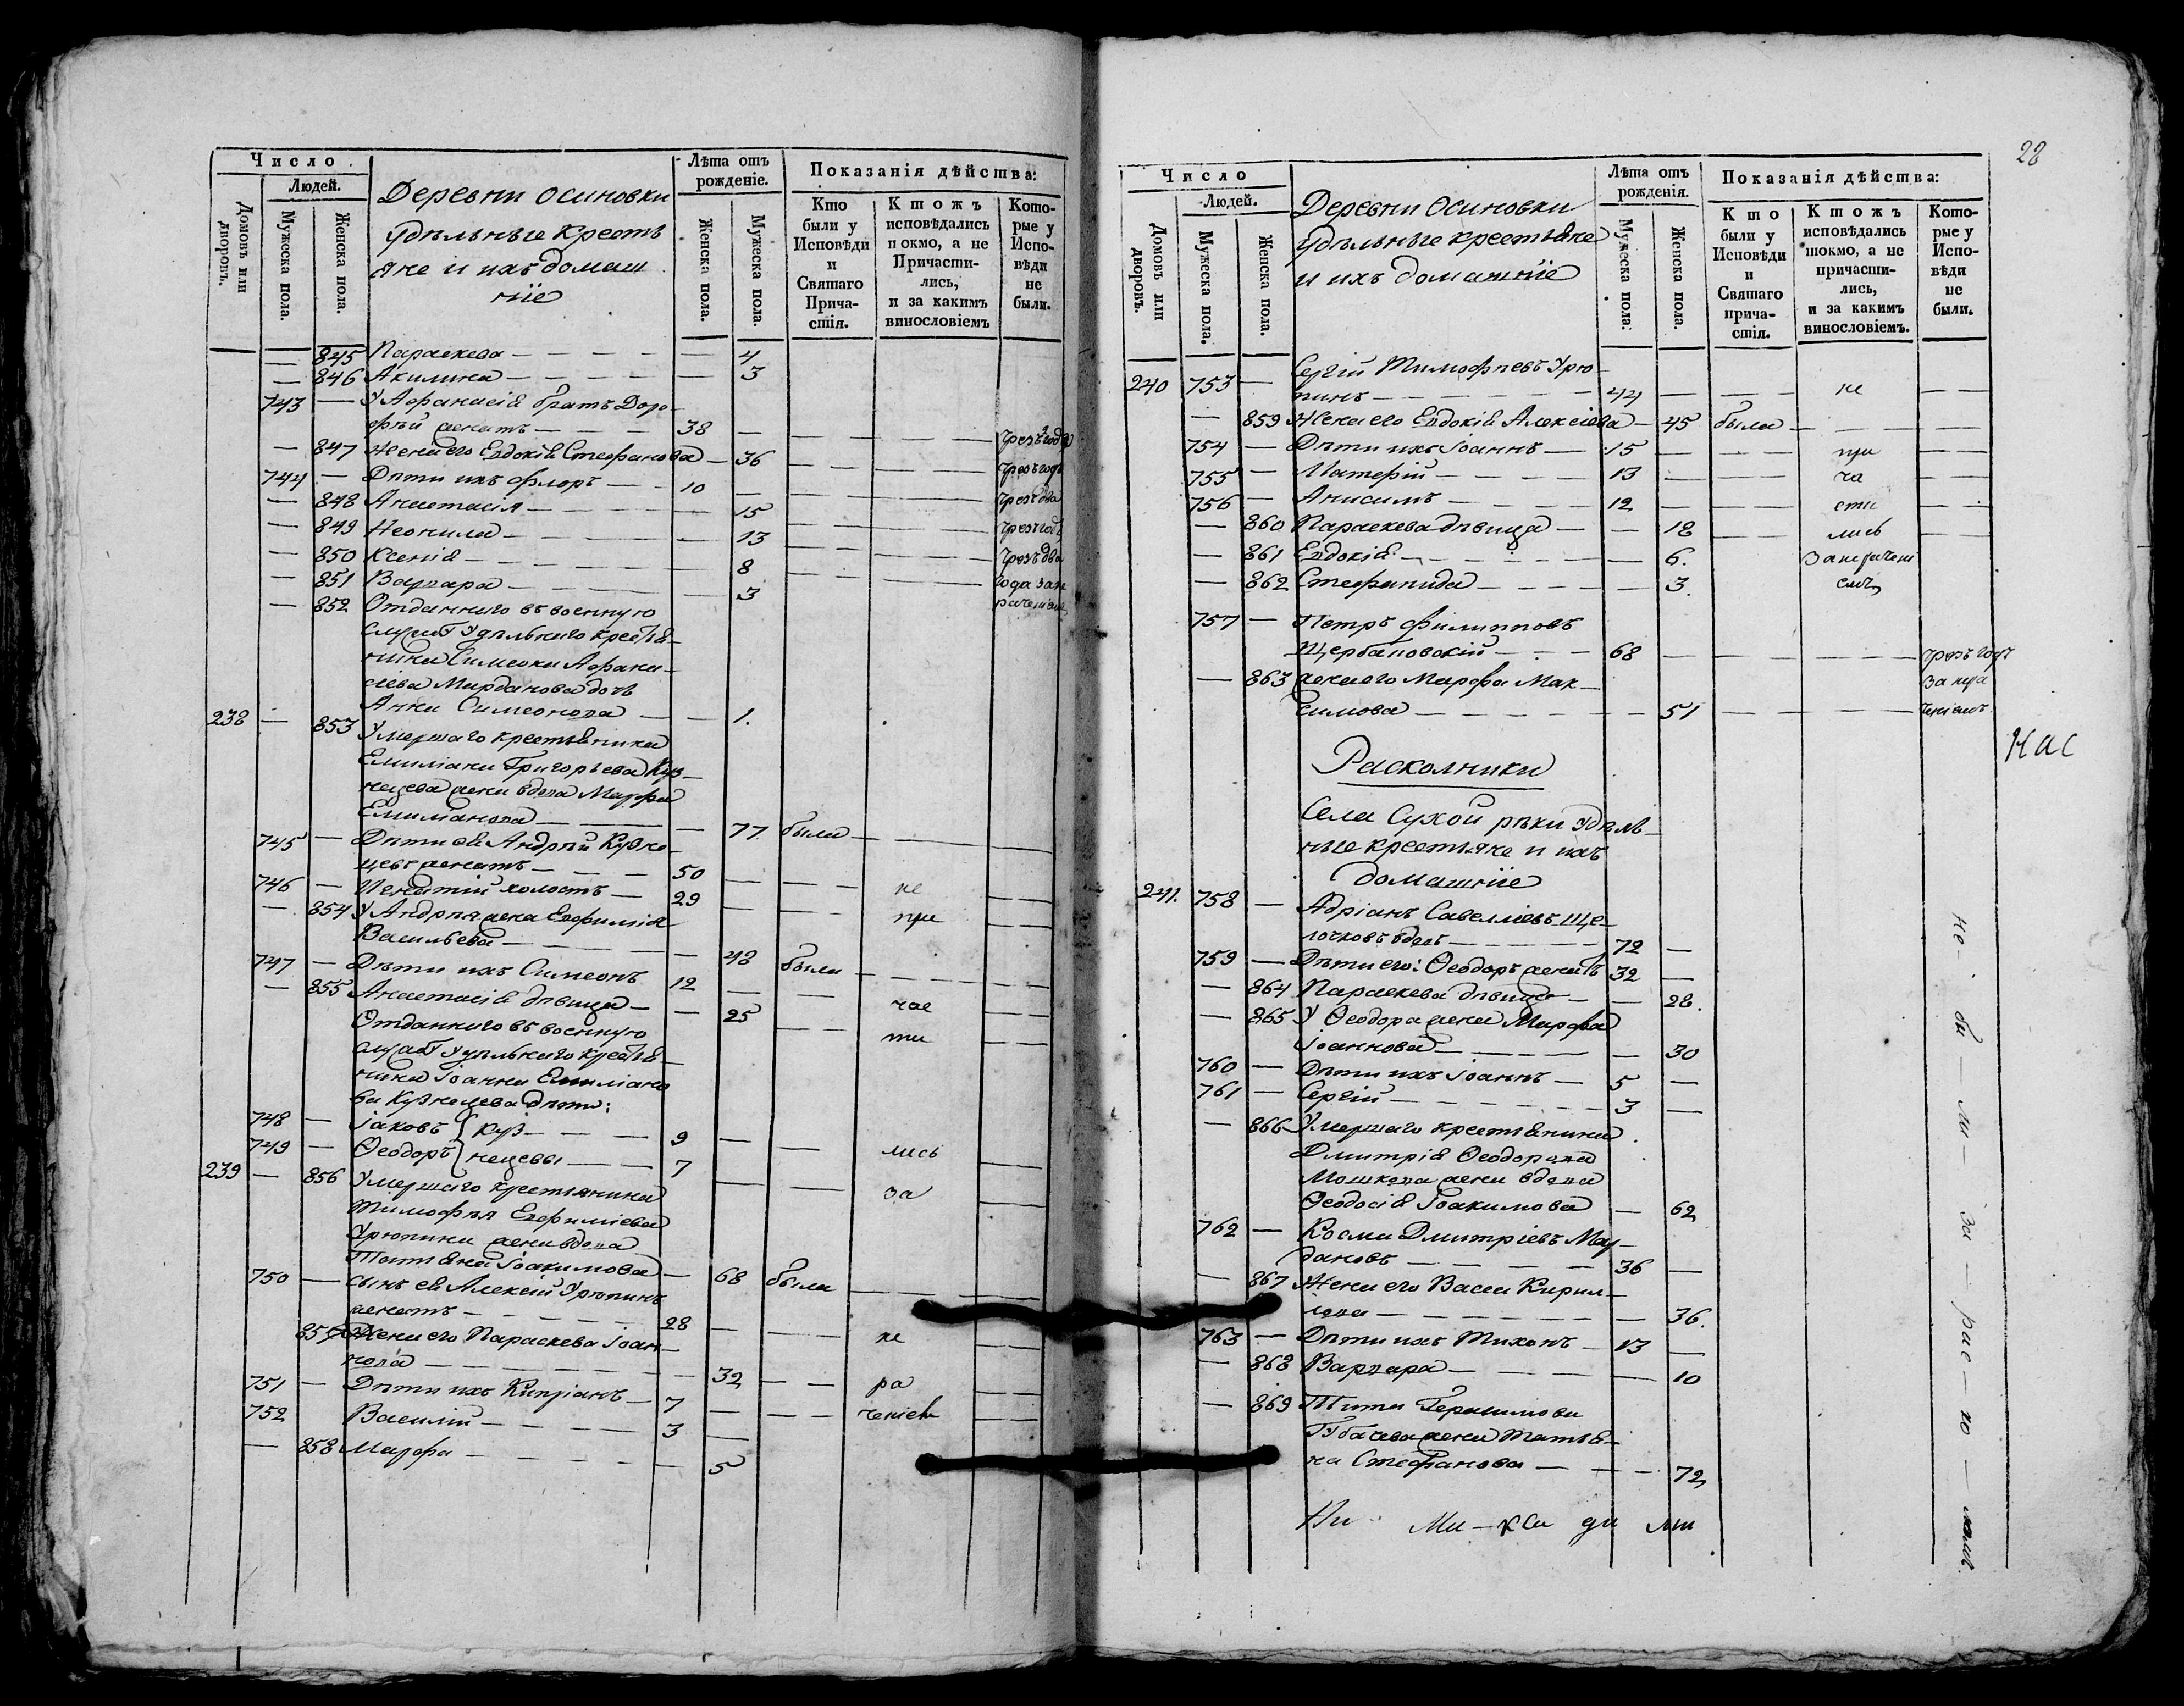 Число
Людей.
Домовъ или дворовъ.
Мужеска пола.
Женска пола.
Деревни Осиновки
удѣльныте крестъ
яне и ихъ домаш
ніе
Лѣта отъ
рожденіе.
Женска пола.
Мужеска пола.
Показанія дѣйства:
Кто
были у
Исповѣди
и
Святаго
Прича-
стія.
Ктожъ
исповѣдались
покмо, а не
Причасти-
лись,
и за какимъ
винословіемъ
Кото-
рые у
Испо-
вѣди
не
были.
— 845 Параскева — — 4
— 846 Акилина — — 3
743 — У Афанасія братъ Доро-
фѣй женатъ — 38 — чрезъ 2 года
— 847 Жена его Евдокія Стефанова — 36 чрезъ годъ
744 — Дѣти ихъ Флоръ — 10 — чрезъ два
— 848 Анастасія — — 15 чрезъ годъ
— 849 Неонила — — 13 чрезъ два
— 850 Ксенія — — 8 года за не
— 851 Варвара — — 3 раченіемъ
— 852 Отданного въ военную
службу Удѣльного крестья-
нина Симеона Афана-
сіева Марданова дочь
Анна Симеонова — — 1.
238 — 853 Умершаго крестьянина
Емиліана Григорьева Куз-
нецева жена вдова Марфа
Емилианова — — 77 была —
745 — Дѣти ея Андрей Кузне-
цевъ женатъ — 50 —
746 — Игнатій холостъ — 29 — не
— 854 У Андрея жена Евфимія при
Васильева — — 48 была —
747 — Дѣти ихъ Симеонъ 12 —
— 855 Анастасія дѣвица — — 25 час
Отданного въ военную ти
службу Удѣльного крестья-
нина Іоанна Емиліано
ва Кузнецева дѣти:
748 — Іаковъ } Куз- — 9 — лись
749 — Ѳеодоръ } нецевы — 7 —
239 — 856 Умершаго крестьянина за
Тимофѣя Евфиміева
Урюпина жена вдова
Татьяна Іоакимова — — 68 была
750 — сынъ ея Алексій Урюпинъ
женатъ — 28 — не
857 Жена его Параскева Іоан-
нова — — 32 — ра
751 — Дѣти ихъ Кипріанъ — 7 — ченіемъ
752 Василій — 3 —
— 858 Марфа — — 5
28
Число
Людей.
Домовъ или дворовъ.
Мужеска пола.
Женска пола.
Деревни Осиновки
удѣльныте крестьяне
и ихъ домашніе
Лѣта отъ
рожденія.
Мужеска пола.
Женска пола.
Показанія дѣйства:
Кто
были у
Исповѣди
и
Святаго
прича-
стія.
Ктожъ
исповѣдались
шокмо, а не
причасти-
лись,
и за какимъ
винословіемъ.
Кото-
рые у
Испо-
вѣди
не
были.
240 753 — Сергій Тимофеевъ Урю-
пинъ — 44 — не —
— 859 Жена его Евдокія Алексіева — 45 была —
754 — Дѣти ихъ Іоаннъ — 15 — при —
755 — Матфій — 13 — ча —
756 — Анисимъ — 12 — сти —
— 860 Параскева дѣвица — — 18 лись
— 861 Евдокія — — 6. За нерачені
— 862 Стефанида — — 3. емъ
757 — Петръ Филипповъ
Щербановскій — 68 — чрезъ годъ
— 863 жена его Марфа Мак- за нера
симова — — 51 — ченіемъ
Нас
Расколники
Села Сухой рѣки Удѣль-
ные крестьяне и ихъ
домашніе
241. 758 — Адріанъ Савелліевъ Ще-
лочковъ вдовъ — 72 —
759 — Дѣти его: Ѳеодоръ женатъ 32 —
— 864 Параскева дѣвица — — 28.
— 865 У Ѳеодора жена Марфа
Іоаннова — — 30
760 — Дѣти ихъ Іоаннъ — 5 —
761 — Сергій — 3 —
— 866 Умершаго крестьянина
Дмитрія Ѳеодорова
Мошкова жена вдова
Ѳеодосія Іоакимова — 62
762 — Косма Дмитріевъ Мар-
дановъ — 36 —
— 867 Жена его Васса Кирил-
лова — — 36.
763 — Дѣти ихъ Тихонъ — 13 —
— 868 Варвара — — 10
— 869 Тита Герасимова
Губачева жена Татья-
на Стефанова — — 72
не — бы — ли — за — рас — ко — ломъ.